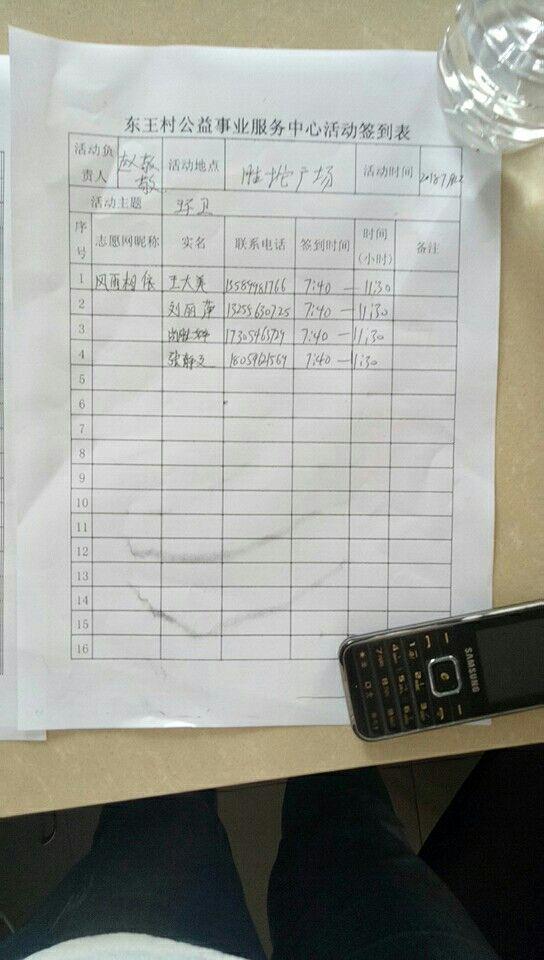 东王村公益事业服务中心活动签到表
活动负责人 赵敬敬 活动地点 胜伦广场 活动时间
活动主题 环卫
序号 志愿网昵称 实名 联系电话 签到时间 时间(小时) 备注
1 风雨相依 王大美 13589981766 7:40 — 11:30
2 刘丽萍 13255630725 7:40 — 11:30
3 17305463729 7:40 — 11:30
4 张静文 18059121569 7:40 — 11:30
5
6
7
8
9
10
11
12
13
14
15
16
SAMSUNG